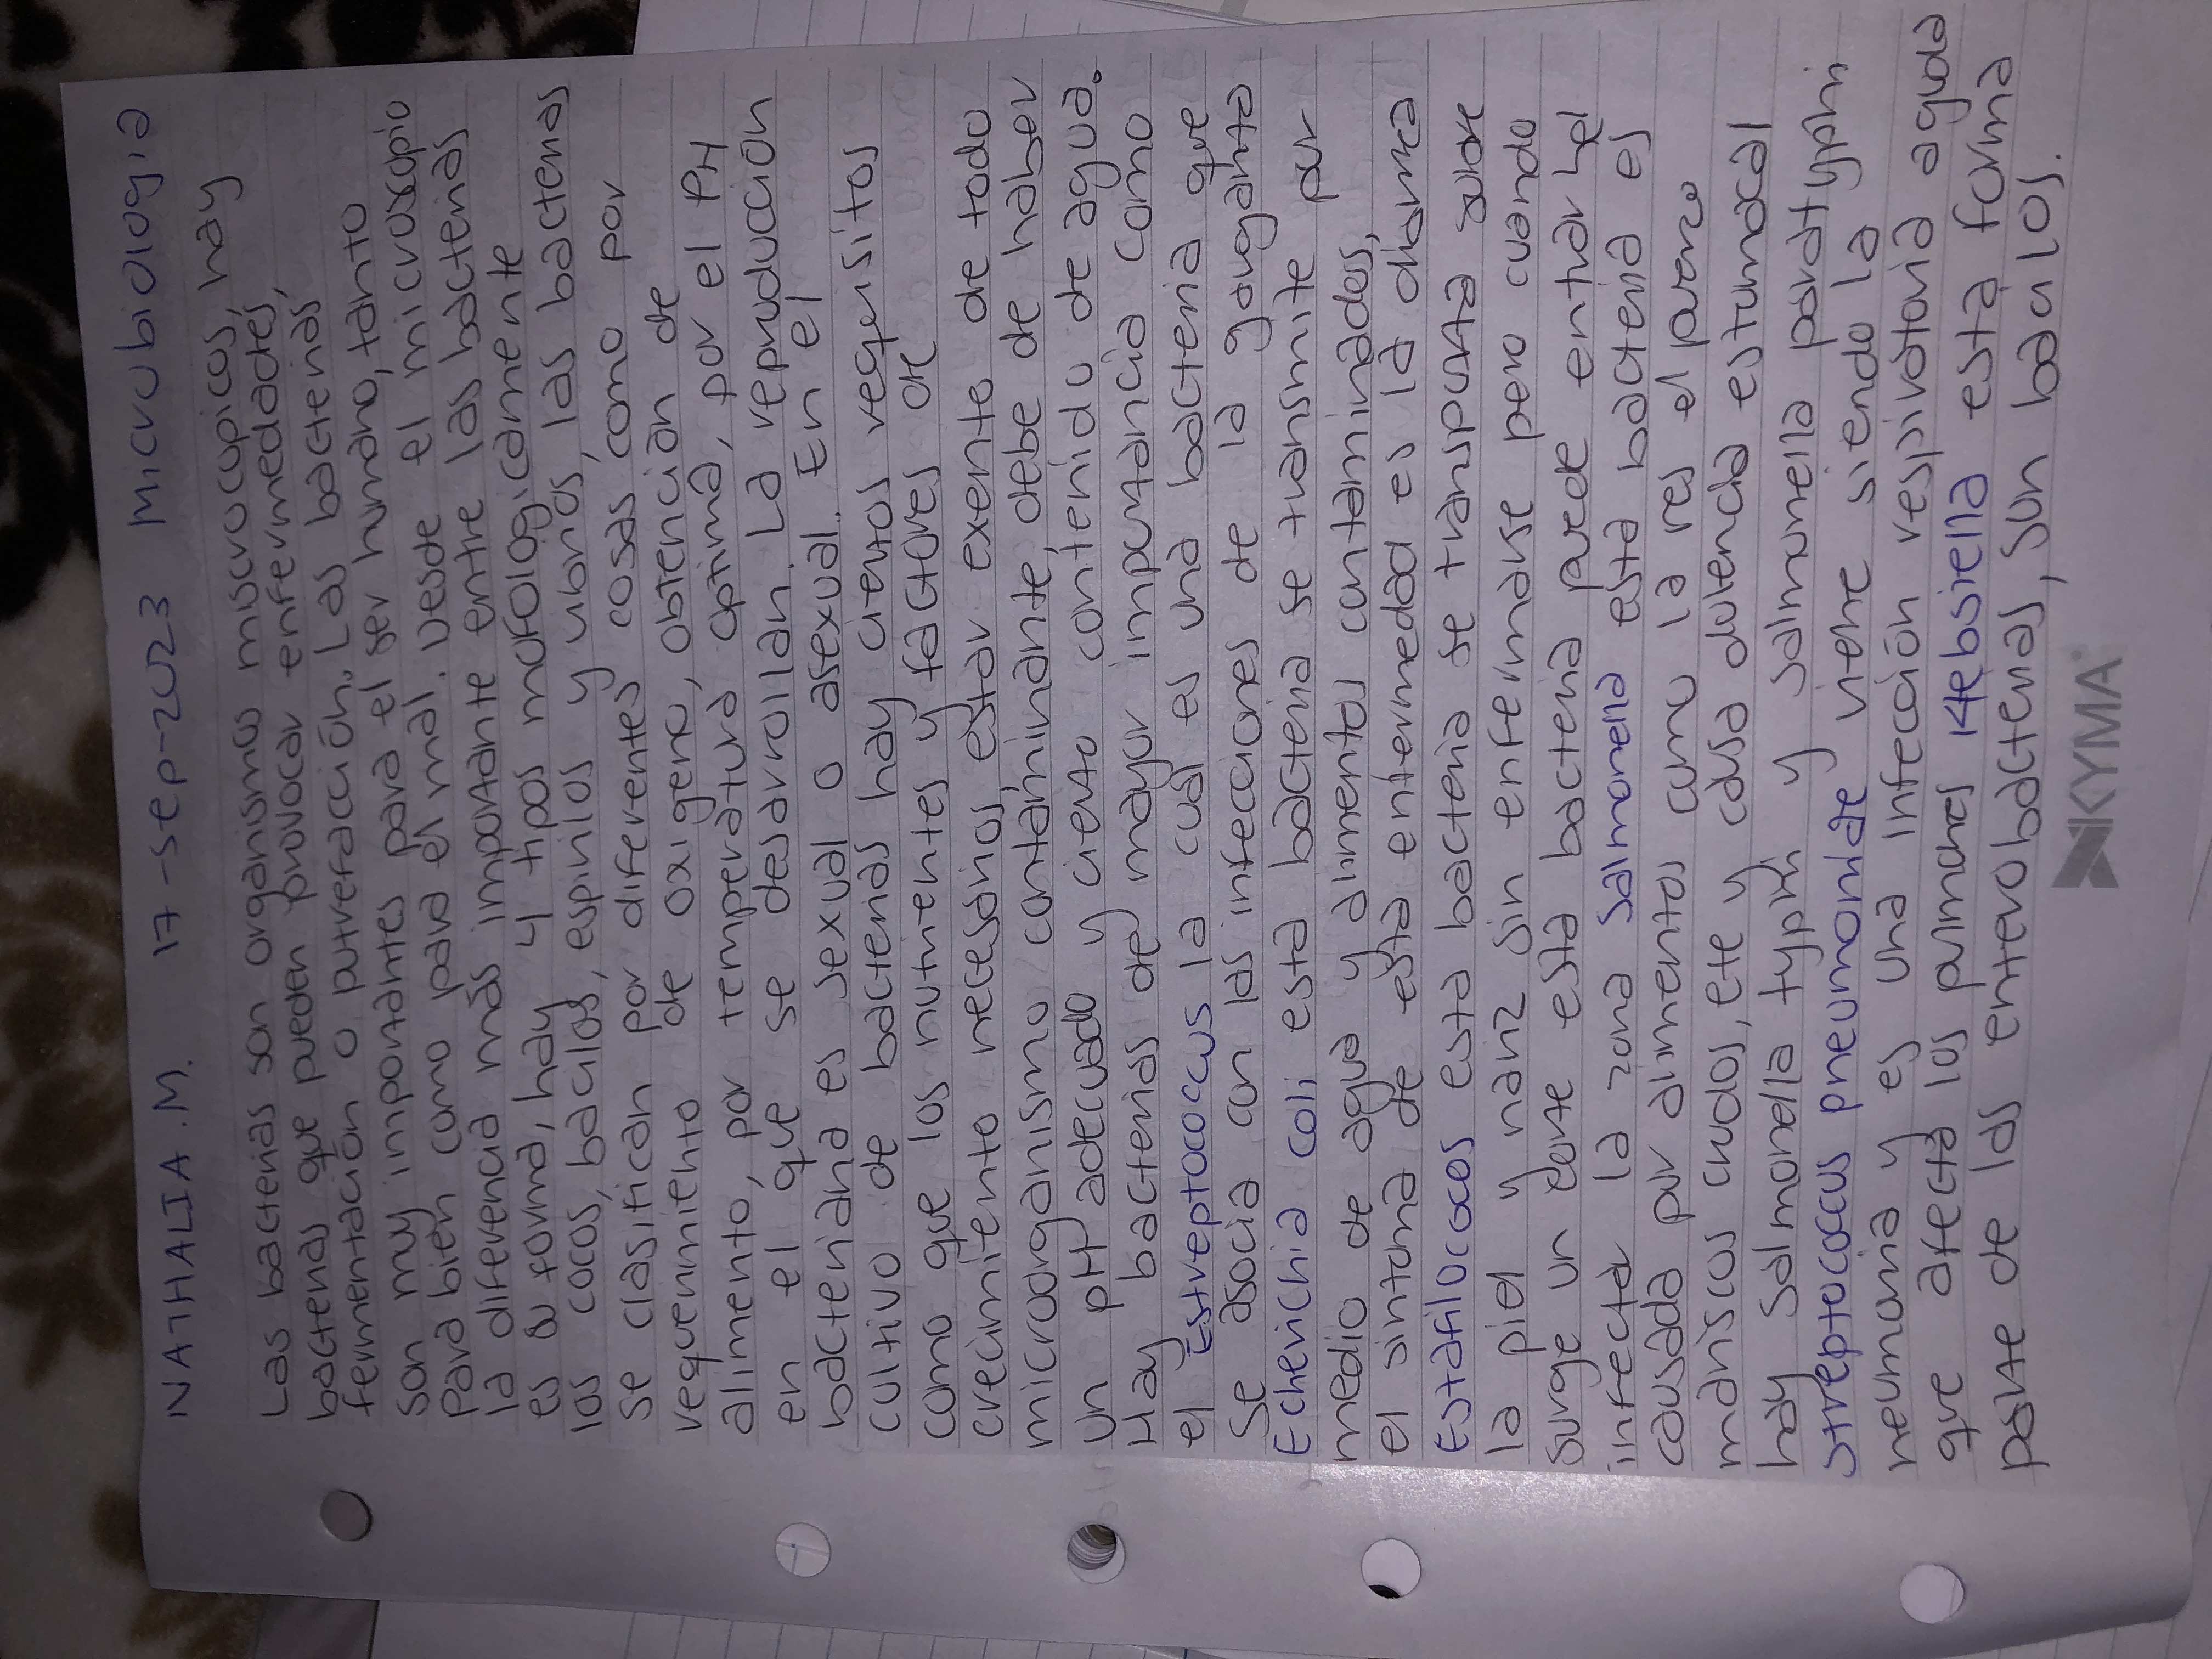 NATHALIA.M. 17-sep-2023 Microbiologia
Las bacterias son organismos miscrocopicos, hay
bacterias que pueden provocar enfermedades,
fermentación o putrefacción. Las bacterias,
son muy importantes para el ser humano, tanto
para bien como para el mal. Desde el microscopio
la diferencia más importante entre las bacterias
es su forma, hay 4 tipos morfologicamente
los cocos, bacilos, espirilos y vibrios, las bacterias
se clasifican por diferentes cosas, como por
requerimiento de oxigeno, obtención de
alimento, por temperatura optima, por el PH
en el que se desarrollan. La reproducción
bacteriana es sexual o asexual. En el
cultivo de bacterias hay ciertos requisitos
como que los nutrientes y factores de
crecimiento necesarios, estar exento de todo
microorganismo contaminante, debe de haber
un pH adecuado y cierto contenido de agua.
Hay bacterias de mayor importancia como
el Estreptococcus la cual es una bacteria que
se asocia con las infecciones de la garganta
Echerichia coli, esta bacteria se transmite por
medio de agua y alimentos contaminados,
el sintoma de esta enfermedad es la diarrea
Estafilococos esta bacteria se transporta sobre
la piel y nariz sin enfermarse pero cuando
surge un corte esta bacteria puede entrar he
infectar la zona Salmonella esta bacteria es
causada por alimentos como la res el puerco
mariscos crudos, ete y causa dolencia estomacal
hay Salmonella typhi y salmonella paratyphi
streptococcus pneumoniae viene siendo la
neumonia y es una infección respiratoria aguda
que afecta los pulmones Klebsiella esta forma
parte de las enterobacterias, son bacilos.
KYMA